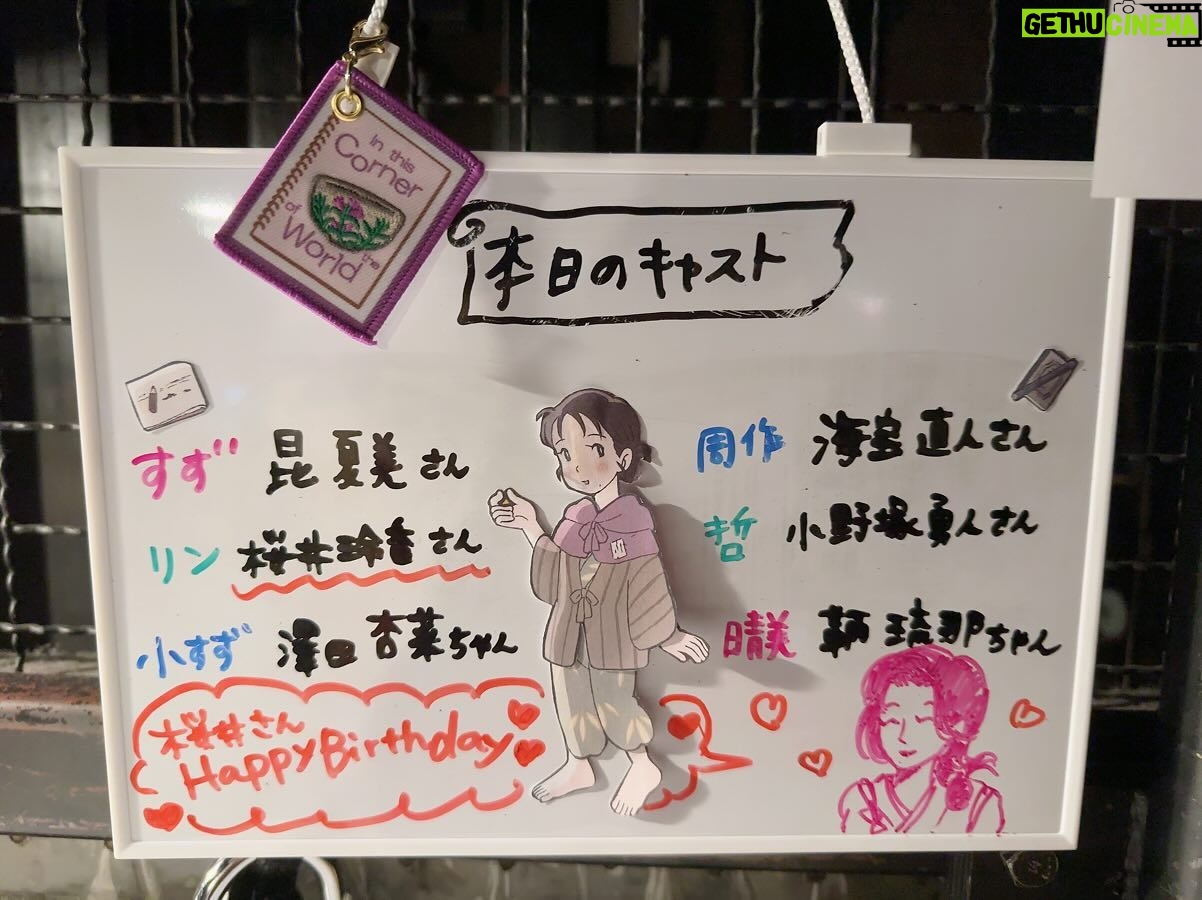 GETHUCINEMA
In this
Corner
of
the
World
本日のキャスト
すず 昆 夏美さん
リン 桜井玲香さん
小すず 澤田 杏菜ちゃん
周作 海宝 直人さん
哲 小野塚勇人さん
晴美 鞆 琉那ちゃん
桜井さん
Happy Birthday